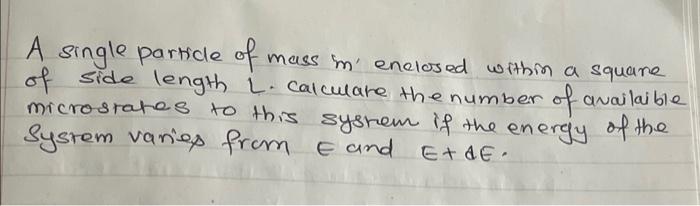 A single particle of mass 'm' enclosed within a square
of side length L. Calculate the number of availaible
microstates to this system if the energy of the
System varies from E and E+dE.